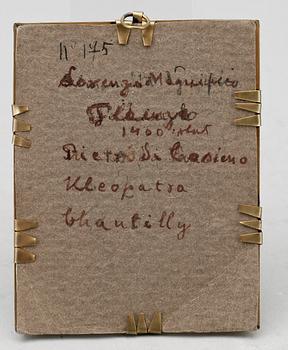 No 175
Lorenzo Magnifico
1400
Pietro di
Kleopatra
Chantilly